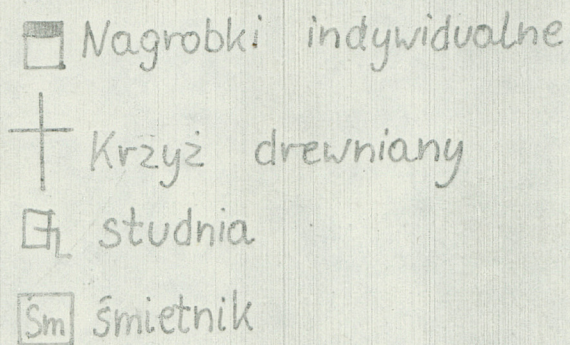 Nagrobki indywidualne
Krzyż drewniany
studnia
Śm śmietnik